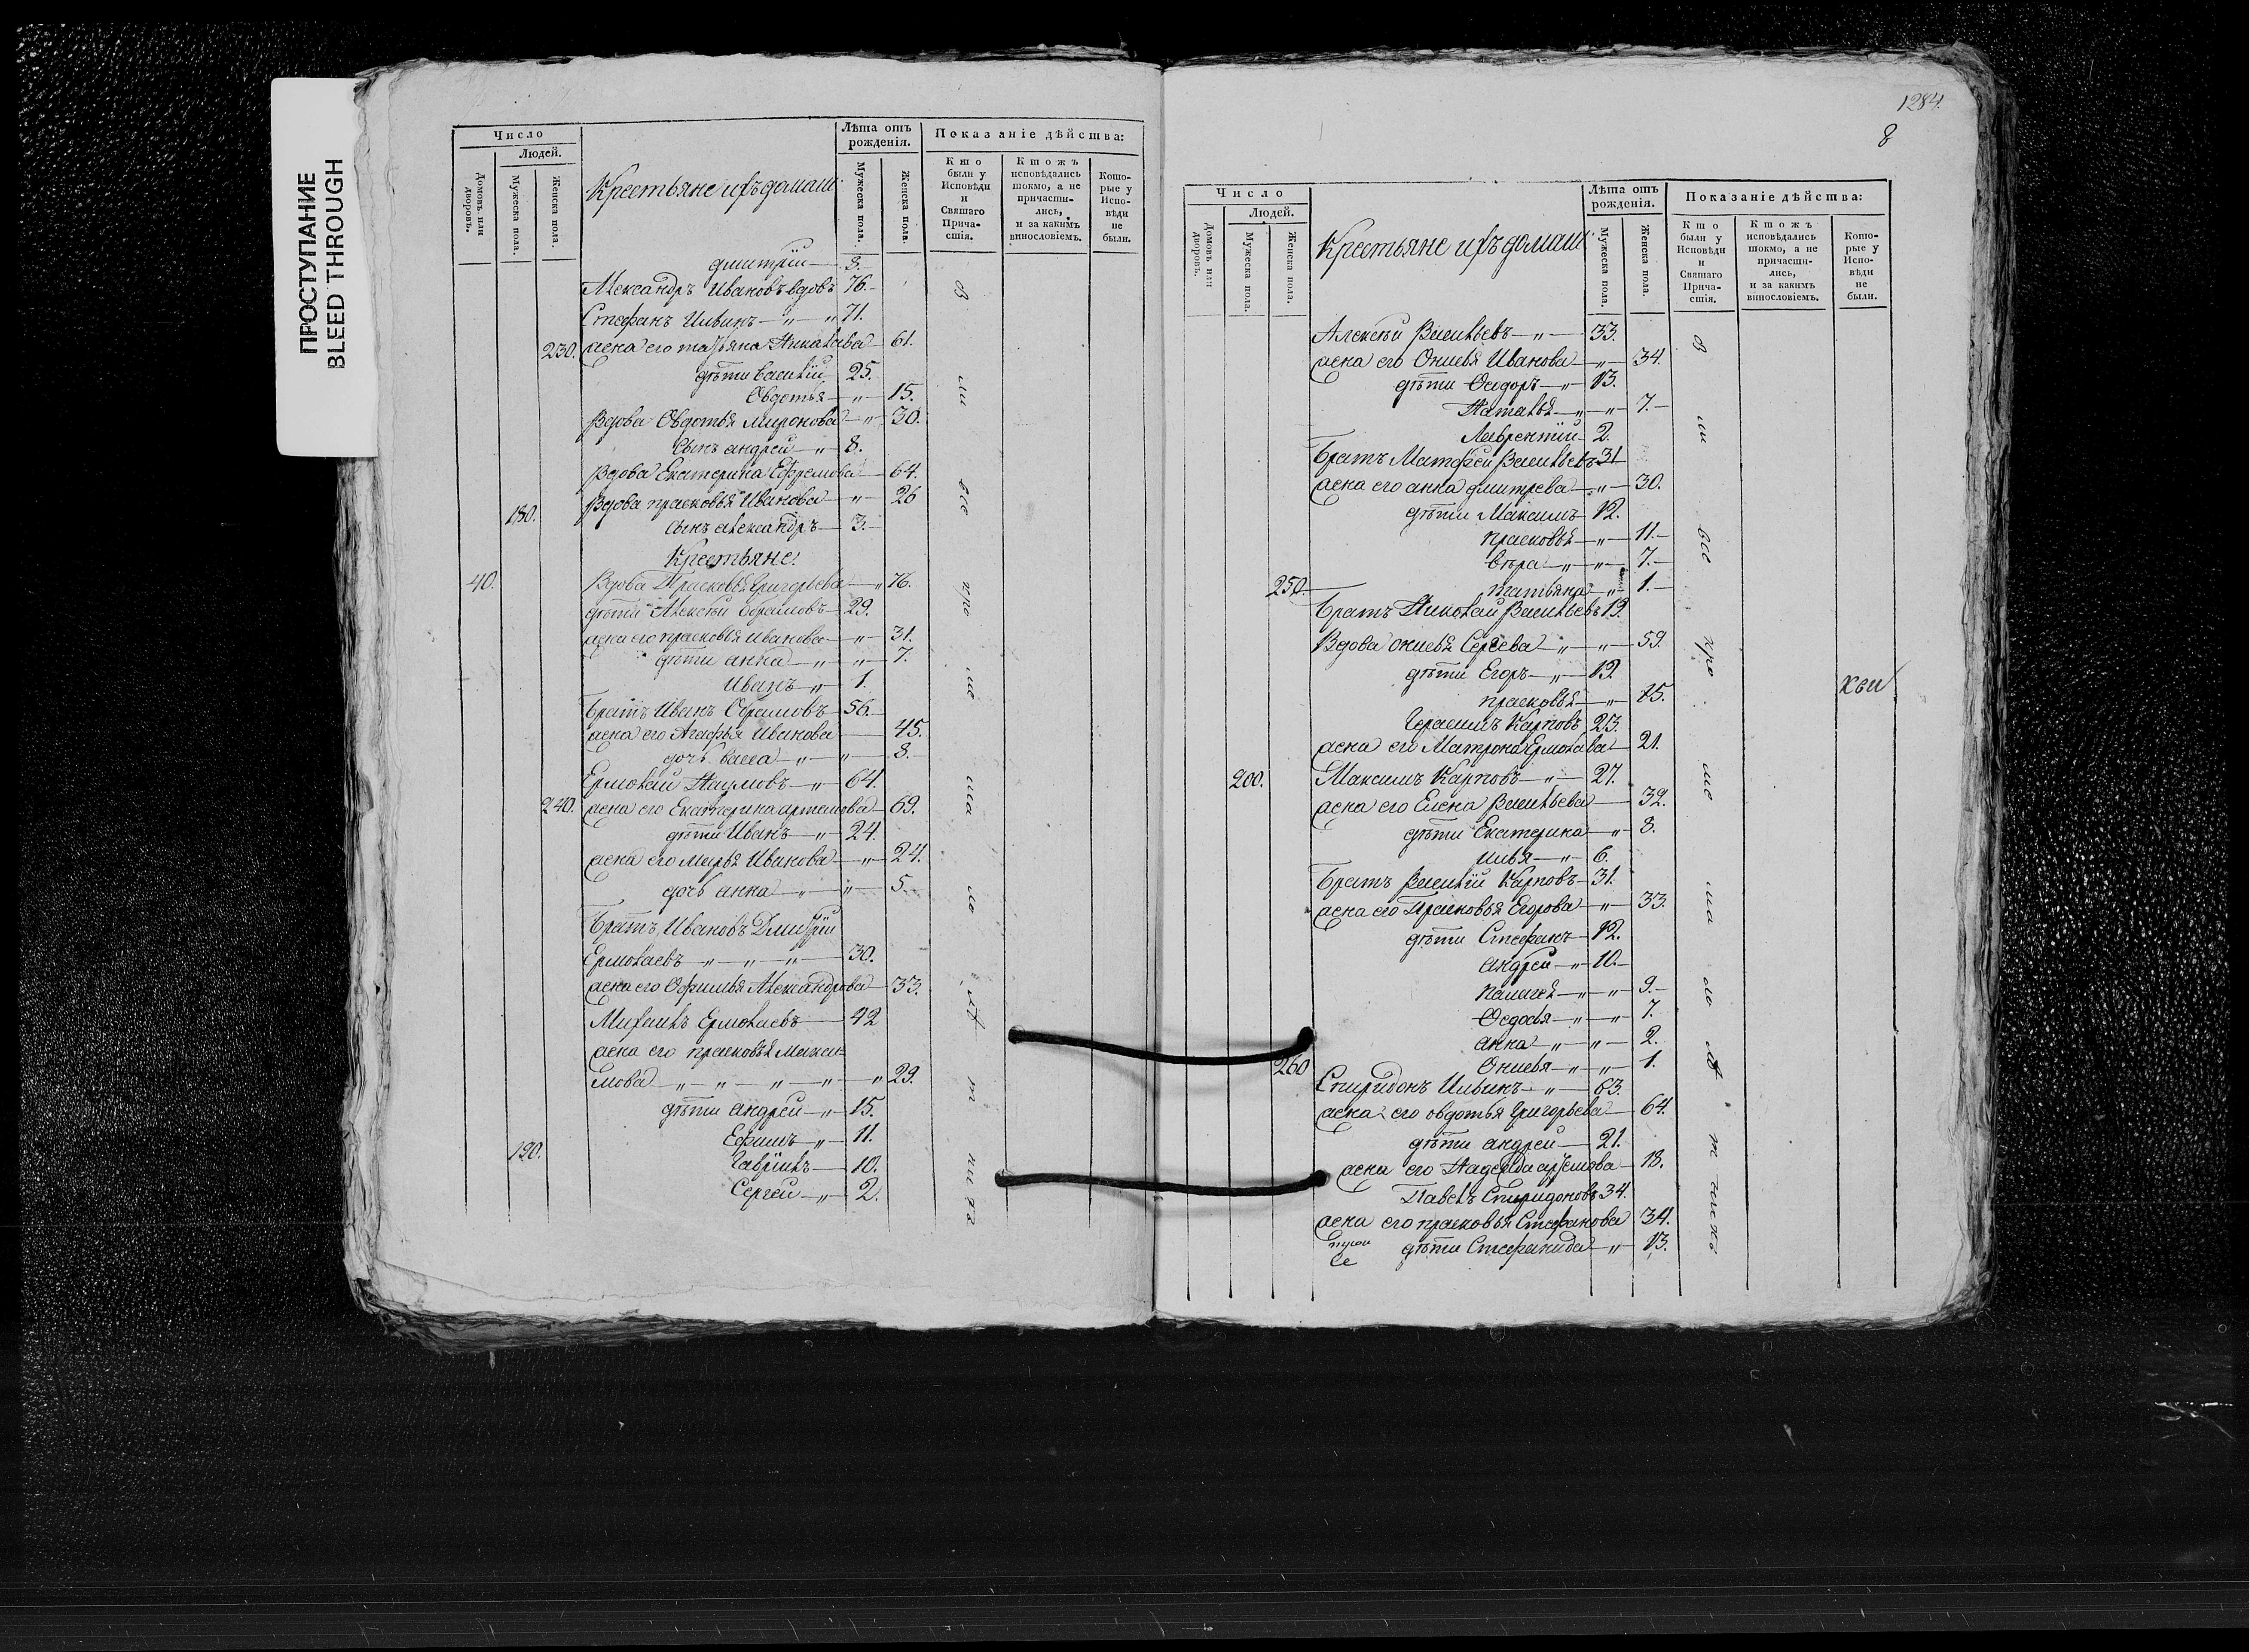 ПРОСТУПАНИЕ
BLEED THROUGH
Число
Людей.
Домовъ или дворовъ.
Мужеска пола.
Женска пола.
Крестьяне ихъ домаш:
Лѣта отъ рожденія.
Мужеска пола.
Женска пола.
Показаніе дѣйства:
Кто были у Исповѣди и Святаго Причастія.
Ктожъ исповѣдались токмо, а не причастились, и за какимъ винословіемъ.
Которые у Исповѣди не были.
дмитрій 3.
Александръ Ивановъ вдовъ 76.
Стефанъ Ильинъ 71.
230. жена его татьяна Николаева 61.
дѣти василій 25.
Овдотья 15.
Вдова Овдотья миронова 30.
сынъ андрей 8.
Вдова Екатерина Ефремова 64.
Вдова прасковья Иванова 26
180. сынъ александръ 3.
Крестьяне.
40. Вдова Прасковья григорьева 76.
дѣти Алексѣй Ефремовъ 29.
жена его прасковья Иванова 31.
дѣти анна 7.
Иванъ 1.
братъ Иванъ Ефремовъ 56.
жена его Агафья Иванова 45.
дочь васса 8.
Ермолай Наумовъ 64.
240. жена его Екатерина артемова 69.
дѣти Иванъ 24.
жена его марья Иванова 24.
дочь анна 5.
братъ Ивановъ Дмитрій
Ермолаевъ 30.
жена его Офимья Александрова 33.
Михаилъ Ермолаевъ 42
жена его прасковья макси-
мова 29.
дѣти андрей 15.
Ефимъ 11.
190. Гаврилъ 10.
Сергей 2.
1284.
8
Число
Людей.
Домовъ или дворовъ.
Мужеска пола.
Женска пола.
Крестьяне ихъ домаш:
Лѣта отъ рожденія.
Мужеска пола.
Женска пола.
Показаніе дѣйства:
Кто были у Исповѣди и Святаго Причастія.
Ктожъ исповѣдались токмо, а не причастились, и за какимъ винословіемъ.
Которые у Исповѣди не были.
Алексѣй Васильевъ 33.
жена его Онисья Иванова 34.
дѣти Ѳедоръ 13.
Наталья 7.
Лаврентій 2.
братъ Матфей Васильевъ 31
жена его анна дмитрева 30.
дѣти Максимъ 12.
прасковья 11.
вѣра 7.
250. татьяна 1.
братъ Николай Васильевъ 19.
Вдова онисья Сергеева 59.
дѣти Егоръ 19.
прасковья 15.
Герасимъ Карповъ 23.
жена его Матрона Ермолаева 21.
200. Максимъ Карповъ 27.
жена его Елена Васильева 32.
дѣти Екатерина 8.
илья 6.
братъ Василій Карповъ 31.
жена его Прасковья Егорова 33.
дѣти Стефанъ 12.
андрей 10.
палагея 9.
Ѳедосья 7.
анна 2.
260 Онисья 1.
Спиридонъ Ильинъ 63.
жена его овдотья григорьева 64.
дѣти андрей 21.
жена его Надежда артемова 18.
Павелъ Спиридоновъ 34.
жена его прасковья Стефанова 34.
дѣти Стефанида 13.